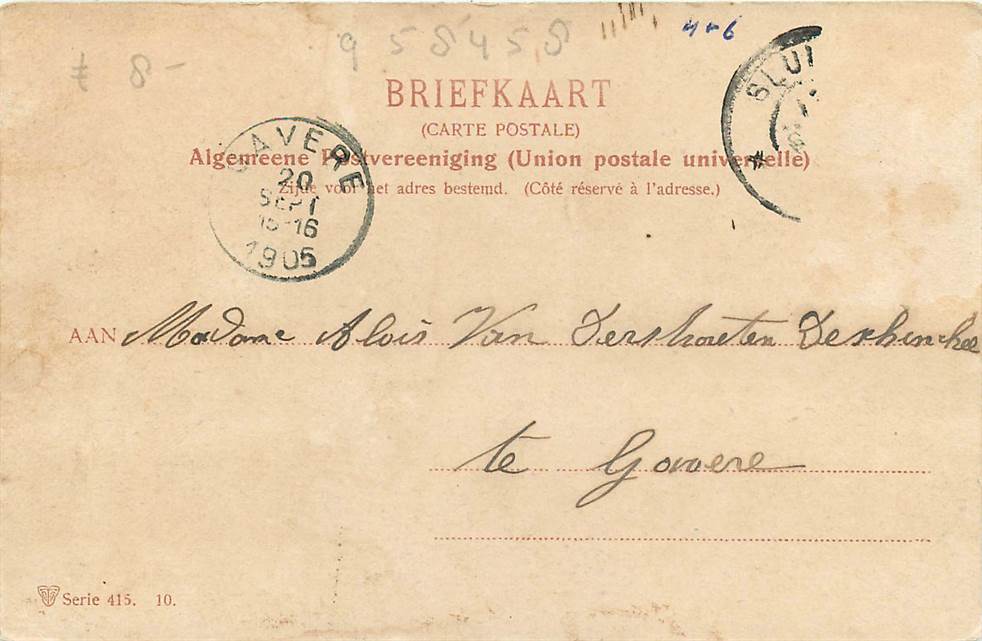 958458
4+6
8-
BRIEFKAART
(CARTE POSTALE)
Algemeene Postvereeniging (Union postale universelle)
Zijde voor het adres bestemd. (Côté réservé à l'adresse.)
GAVERE
20
SEPT
15-16
1905
SLUI
AAN Madame Alois Van
te Gavere
Serie 415. 10.